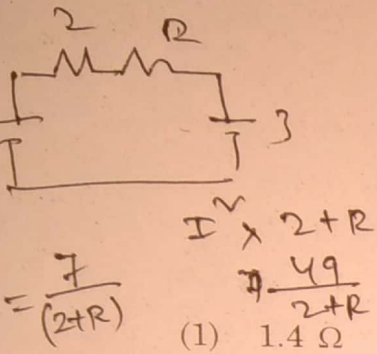 2 R
3
I² × 2+R
= 7/(2+R) 49/2+R
(1) 1.4 Ω